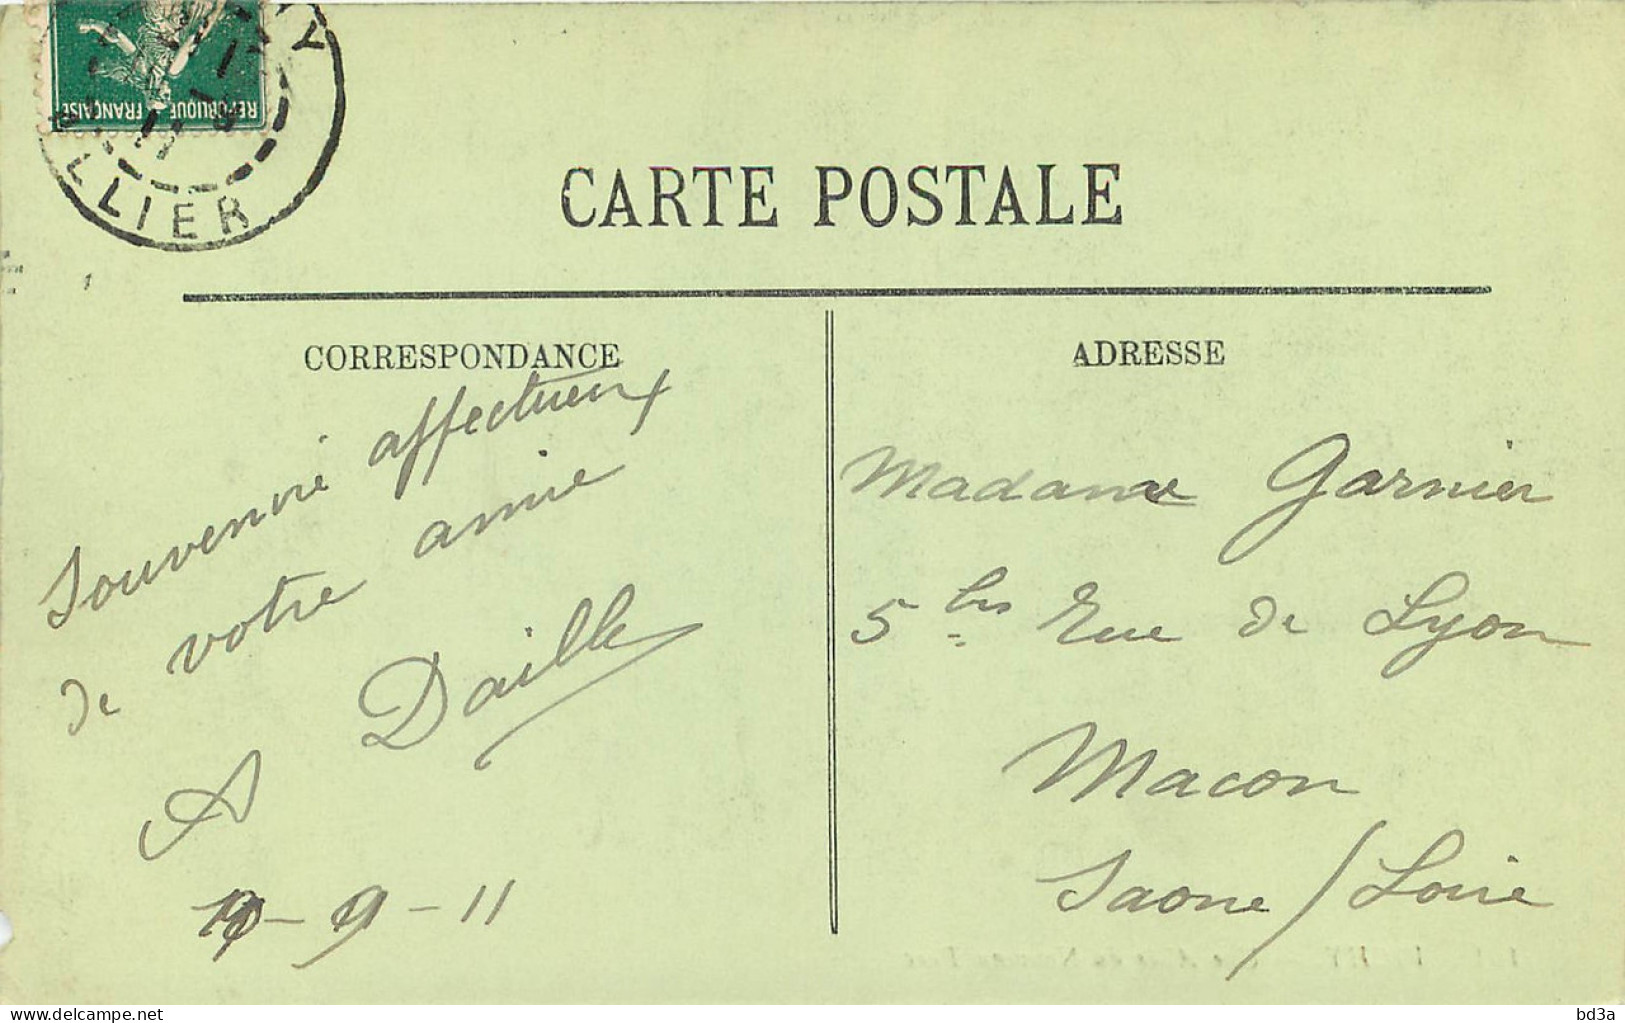 REPUBLIQUE FRANÇAISE
LLIER
CARTE POSTALE
CORRESPONDANCE
Souvenir affectueux
de votre amie
A Daille
9-11
ADRESSE
Madame Garnier
5 bis Rue de Lyon
Macon
Saone / Loire
www.delcampe.net
bd3a